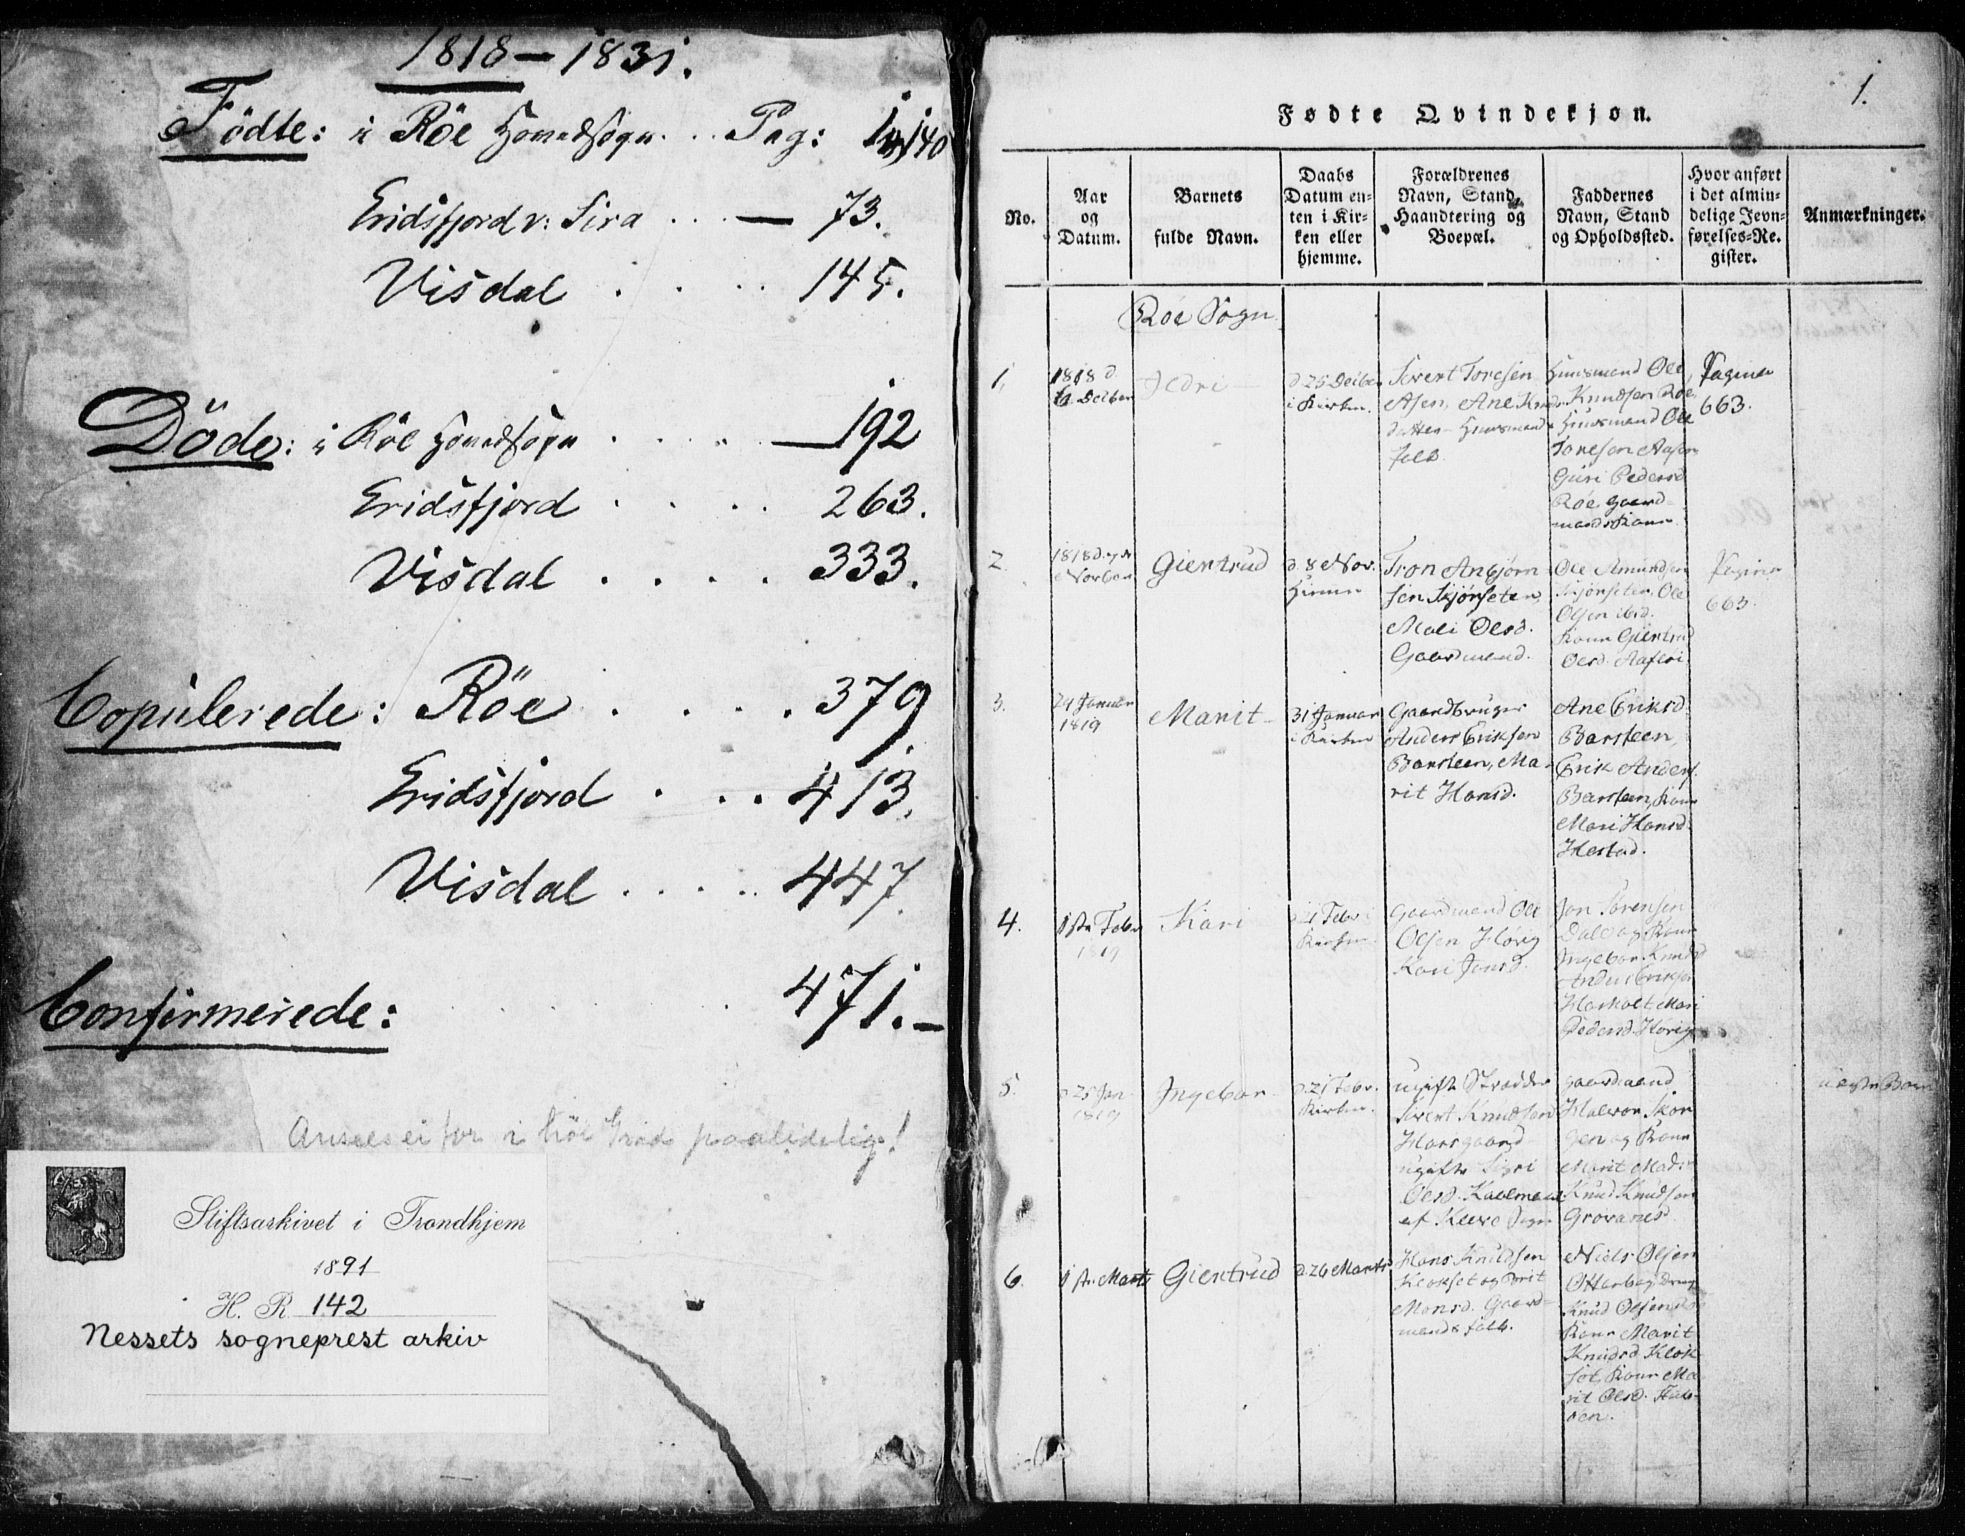 1818 – 1831.
Födte: i Röe Hovedsogn . . Pag: 1 140
Eridsfjord v: Sira . . . — 73.
Visdal . . . . 145.
Döde: i Röe Hovedsogn . . . . — 192
Eridsfjord . . . . 263.
Visdal . . . . 333.
Copulerede: Röe . . . . 379
Eridsfjord . . . 413.
Visdal . . . . . 447.
Confirmerede: . . . . 471. –
Ansees ei for i höi Grad paalidelig!
Stiftsarkivet i Trondhjem
1891
H. R. 142
Nessets sogneprest arkiv
1.
Fødte Qvindekjøn.
No.
Aar
og
Datum.
Barnets
fulde Navn.
Daabs
Datum en-
ten i Kir-
ken eller
hjemme.
Forældrenes
Navn, Stand,
Haandtering og
Boepæl.
Faddernes
Navn, Stand
og Opholdssted.
Hvor anført
i det almin-
delige Jevn-
førelses-Re-
gister.
Anmærkninger.
Röe Sogn.
1.
1818 d.
Decbr
d 25 Decbr
i Kirken.
Sivert Toresen
Asen, Ane Knuds
datter Huusmands
folk.
Huusmand Ole
Knudsen Röe,
Huusmand Ole
Toresen Aasen
Guri Pedersd
Röe gaard-
mands Kone
Pagina
663.
2.
1818 d. 7de
Novber
Giertrud
d. 8 Nov.
Hiemme
Tron Anbjørn
sen Skjørseter,
Mali Olsd.
Gaardmand.
Ole Amundsen
Skjørseter, Ole
Olsen ibid.
Kone Giertrud
Olsd.
Pagina
663.
3.
24 Januar
1819
Marit
31 Januar
i Kirken
Gaardbruger
Anders Eriksen
Barsteen, Ma-
rit Hansd.
Ane Eriksd.
Barsteen,
Erik Anders.
Barsteen, Kone
Mari Hansd.
Hestad.
4.
1ste Febr
1819
Kari
d 21 Febr
Kirken
Gaardmand Ole
Olsen Hörig
Kari Jonsd.
Jon Sörensen
Dale og Kone
Ingebor Knudsd
Anders Eriksen
Mari
Pedersd. Hörig
5.
d 25 Jan
1819
Ingebor
d. 21 Febr.
Kirken.
ugift Skrædder
Sivert Knudsen
Hansgaard
ugift Sigri
Olsd.
af Sogn
Gaardmand
Halvor Skor
gen og Kone
Marit Mads
Knud Knudsen
Grovanes
uægte Barn
6.
1ste Marts
Giertrud
d. 26 Marts
Hans Knudsen
Klokset og Brit
Monsd. Gaard-
mands folk.
Niels Olsen
Otterbeg
Knud Olsen
Kone Marit
Knudsd Klok
set, Kone Ma
rit Olsd.
öen.